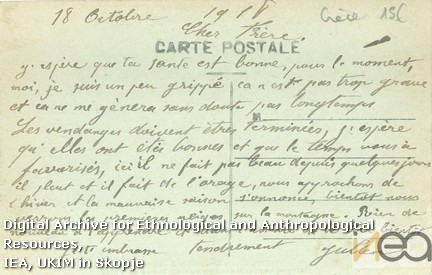 18 Octobre 191
Grèce 15€
Cher Frère.
CARTE POSTALE
j'espère que ta santé est bonne, pour le moment,
moi, je suis un peu grippé ça n'est pas trop grave
et ça ne me gênera sans doute pas longtemps
Les vendanges doivent êtres terminées, j'espère
qu'elles ont étés bonnes et que le temps vous a
favorisés, ici il ne fait pas beau depuis quelques jours
il pleut et il fait de l'orage, nous approchons de
l'hiver et la mauvaise saison s'annonce, bientôt nous
les premières neiges sur la montagne. Rien de
bientôt
embrasse tendrement
Digital Archive for Ethnological and Anthropological
Resources,
IEA, UKIM in Skopje
iea